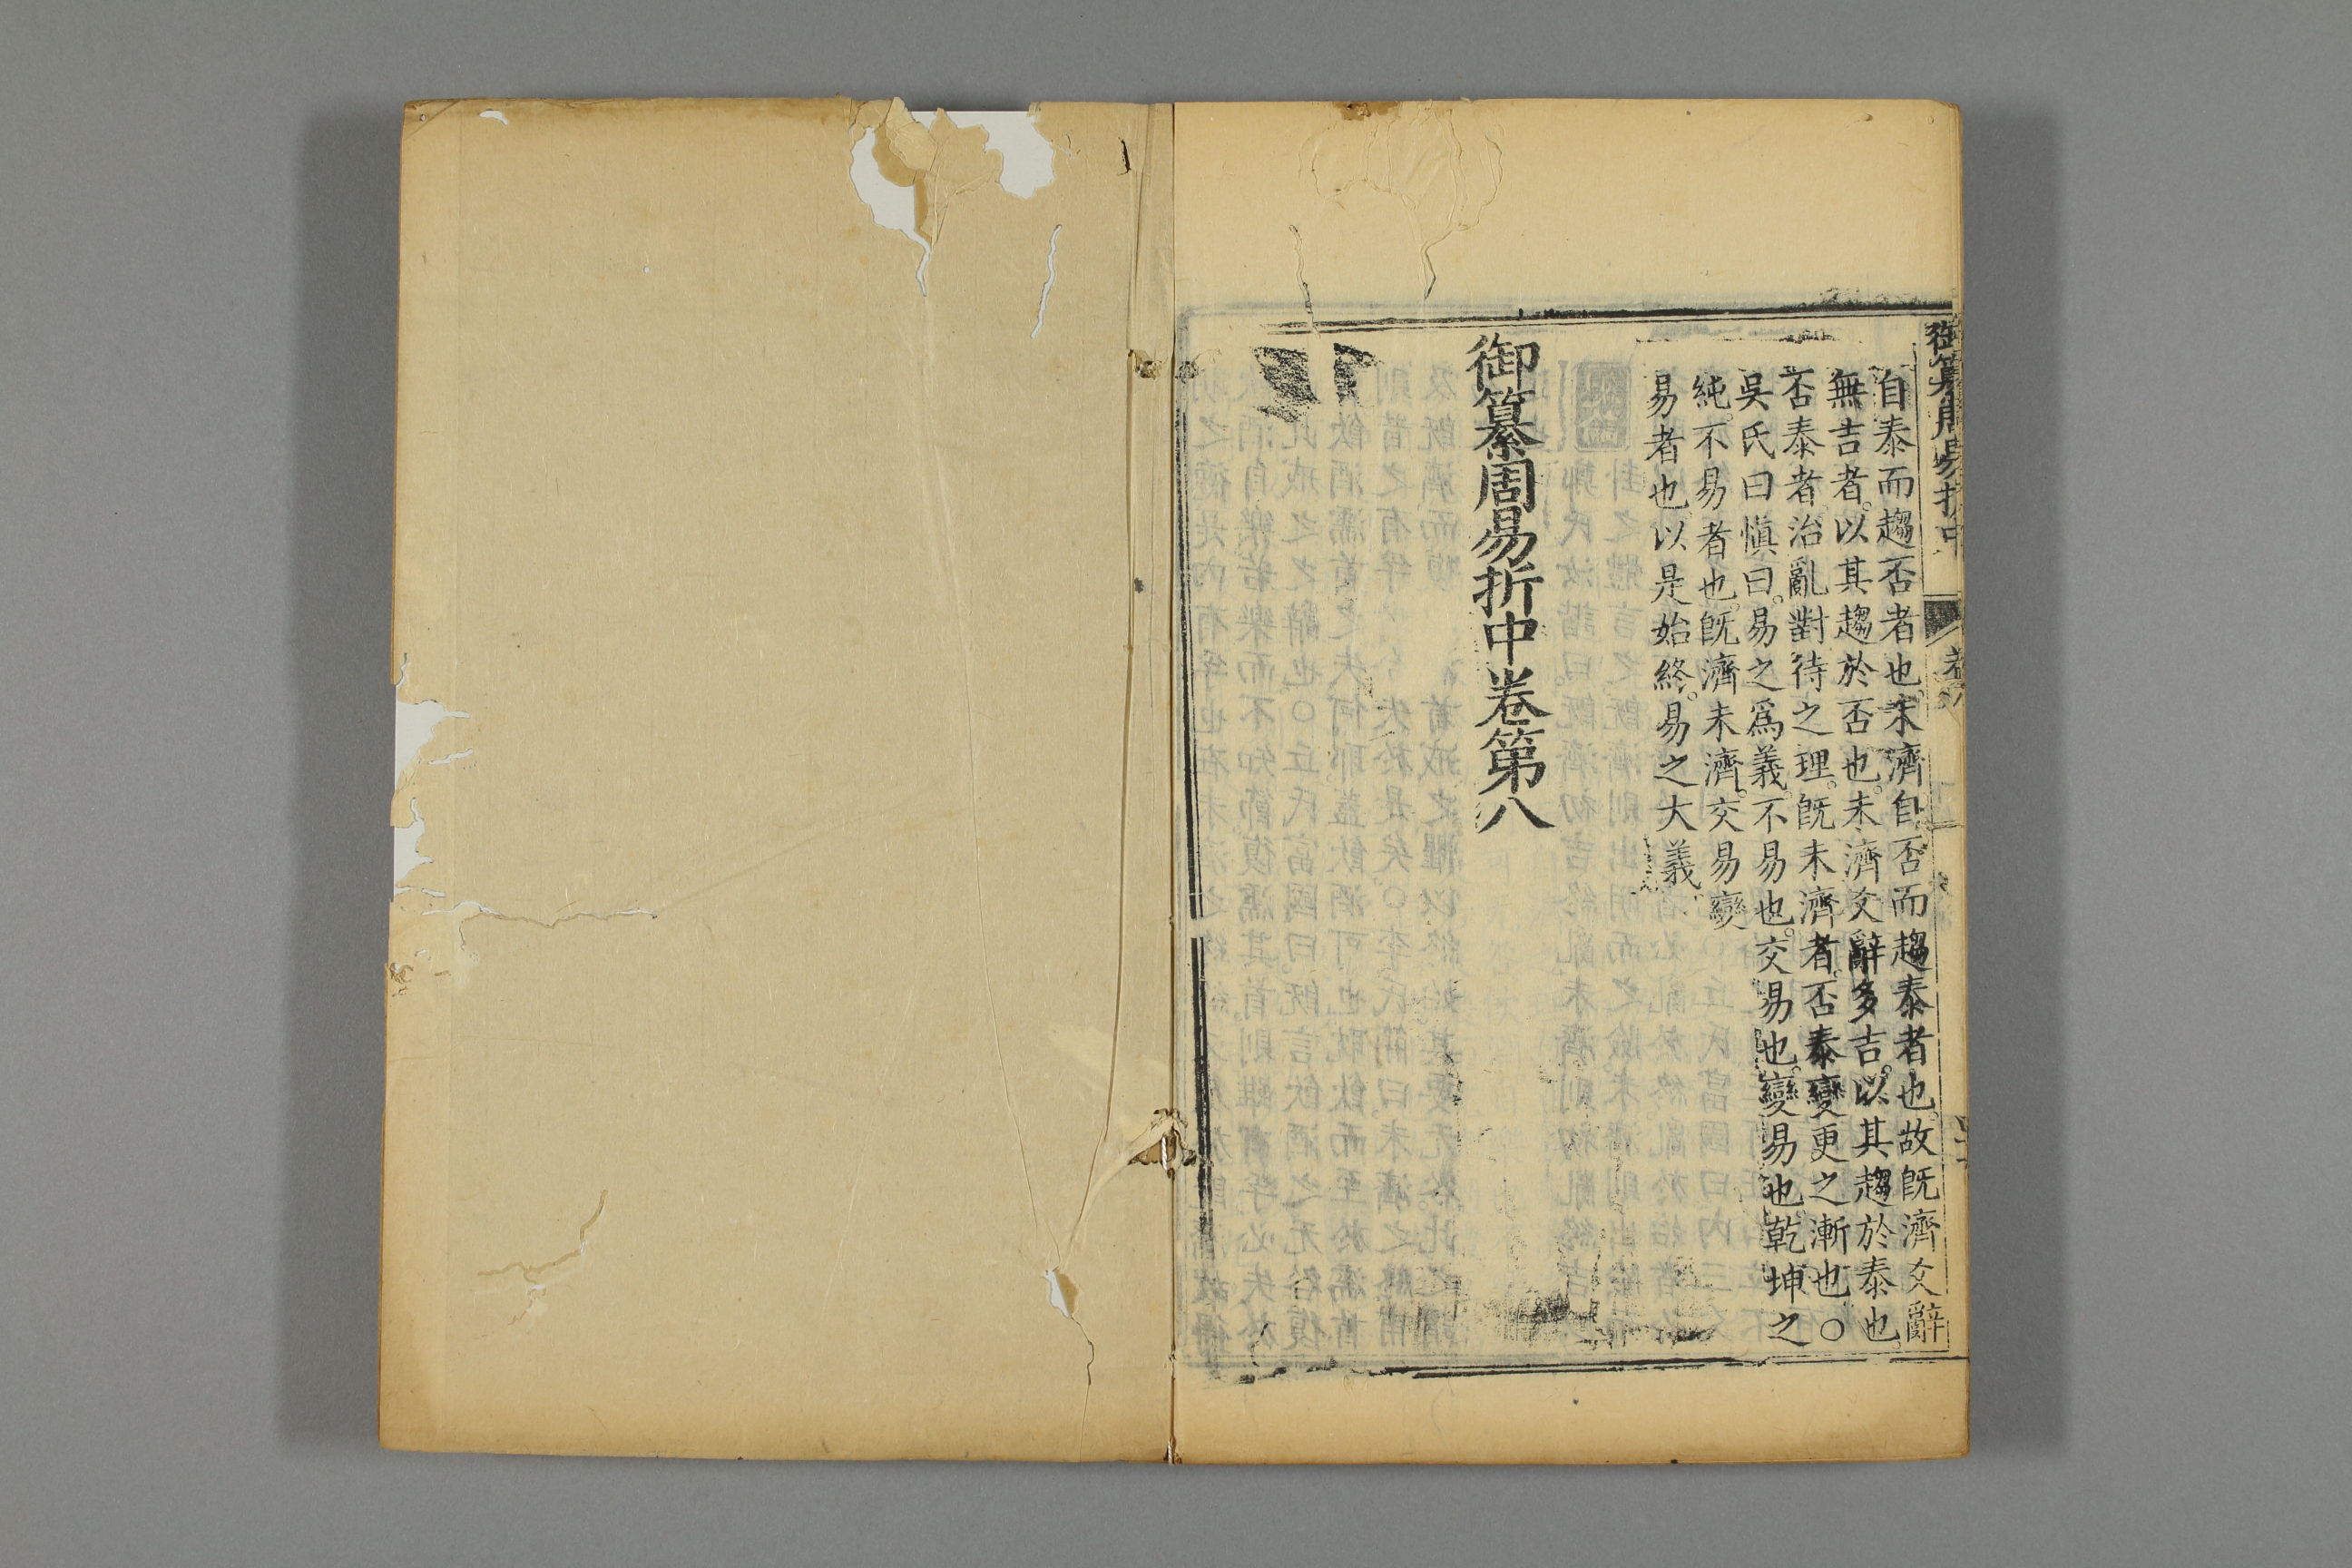 自泰而趨否者也。未濟自否而趨泰者也。故旣濟爻辭
無吉者。以其趨於否也。未濟爻辭多吉。以其趨於泰也。
否泰者。治亂對待之理。旣未濟者。否泰變更之漸也。○
吳氏曰愼曰。易之爲義。不易也。交易也。變易也。乾坤之
純。不易者也。旣濟未濟。交易變
易者也。以是始終。易之大義。
御纂周易折中卷第八